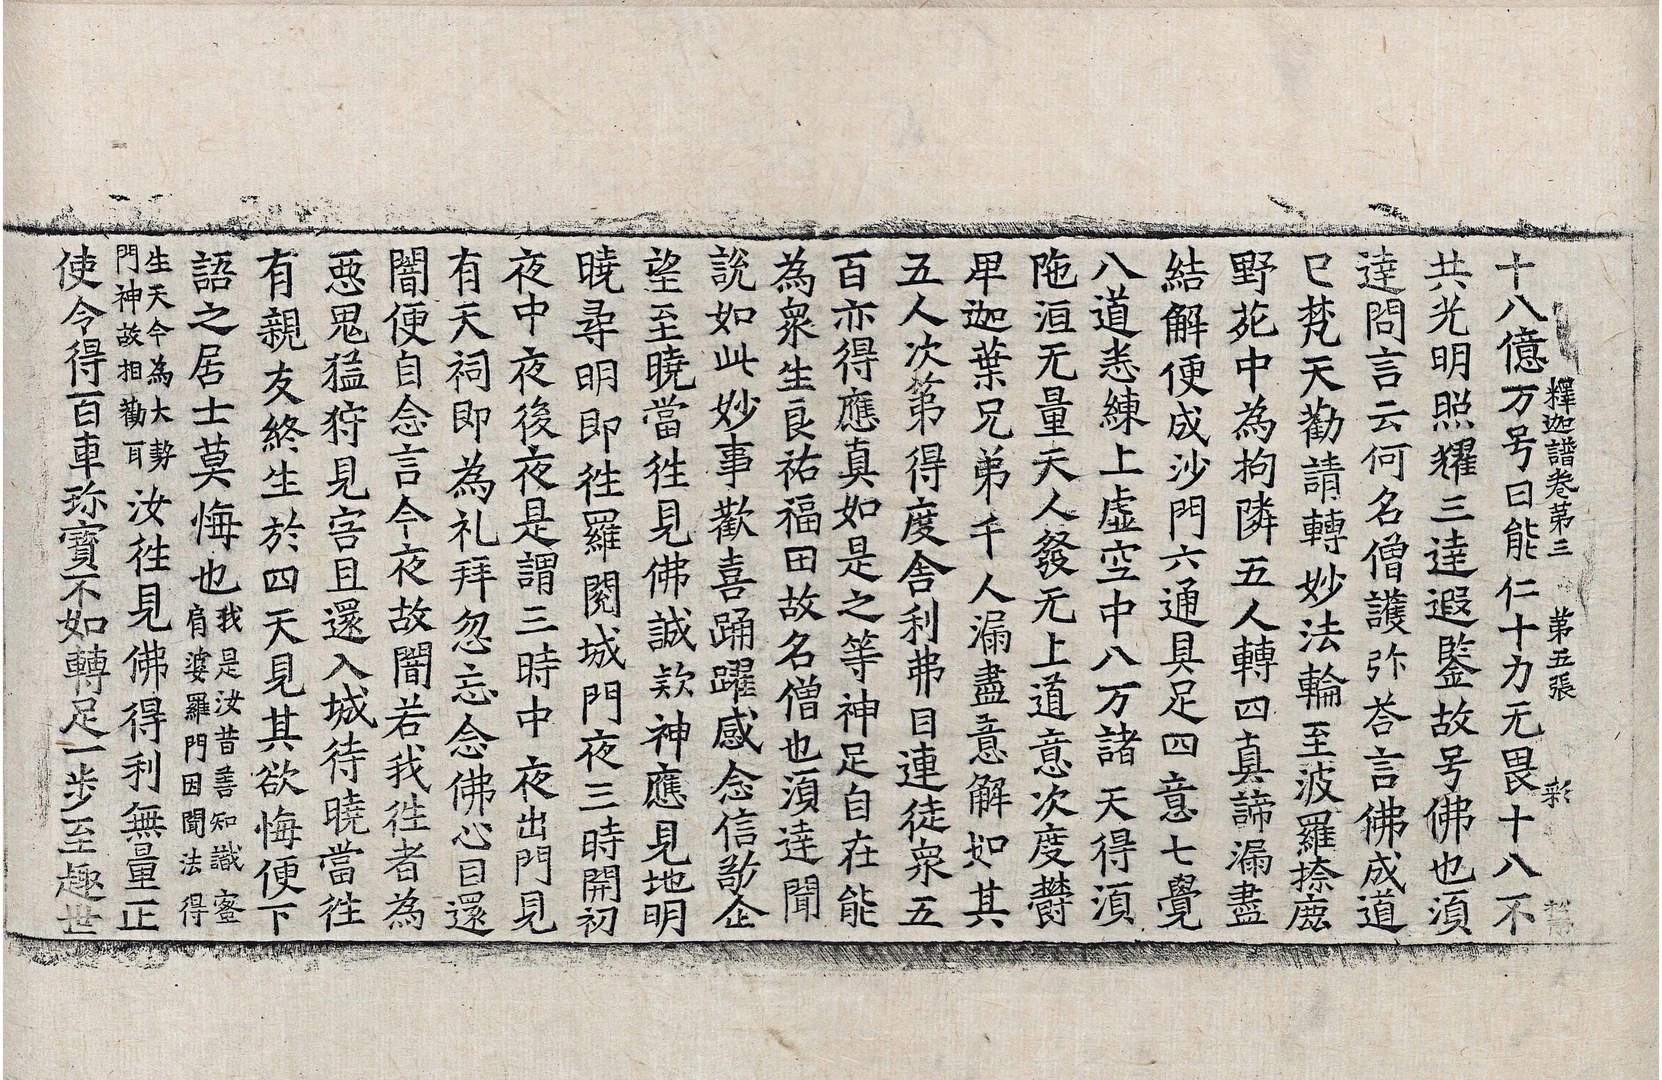 釋迦譜卷第三　第五張　彩
十八億万号曰能仁十力无畏十八不
共光明照耀三達遐鑒故号佛也須
達問言云何名僧護弥荅言佛成道
已梵天勸請轉妙法輪至波羅捺鹿
野苑中為拘隣五人轉四真諦漏盡
結解便成沙門六通具足四意七覺
八道悉練上虛空中八万諸天得須
陁洹无量天人發无上道意次度欝
卑迦葉兄弟千人漏盡意解如其
五人次第得度舍利弗目連徒衆五
百亦得應真如是之等神足自在能
為衆生良祐福田故名僧也須達聞
說如此妙事歡喜踊躍感念信敬企
望至曉當徃見佛誠欵神應見地明
曉尋明即徃羅閱城門夜三時開初
夜中夜後夜是謂三時中夜出門見
有天祠即為礼拜忽忘念佛心目還
闇便自念言今夜故闇若我徃者為
惡鬼猛狩見害且還入城待曉當徃
有親友終生於四天見其欲悔便下
語之居士莫悔也我是汝昔善知識蜜肩婆羅門因聞法得
生天今為大勢門神故相勸耳汝徃見佛得利無量正
使令得百車珎寶不如轉足一步至趣世